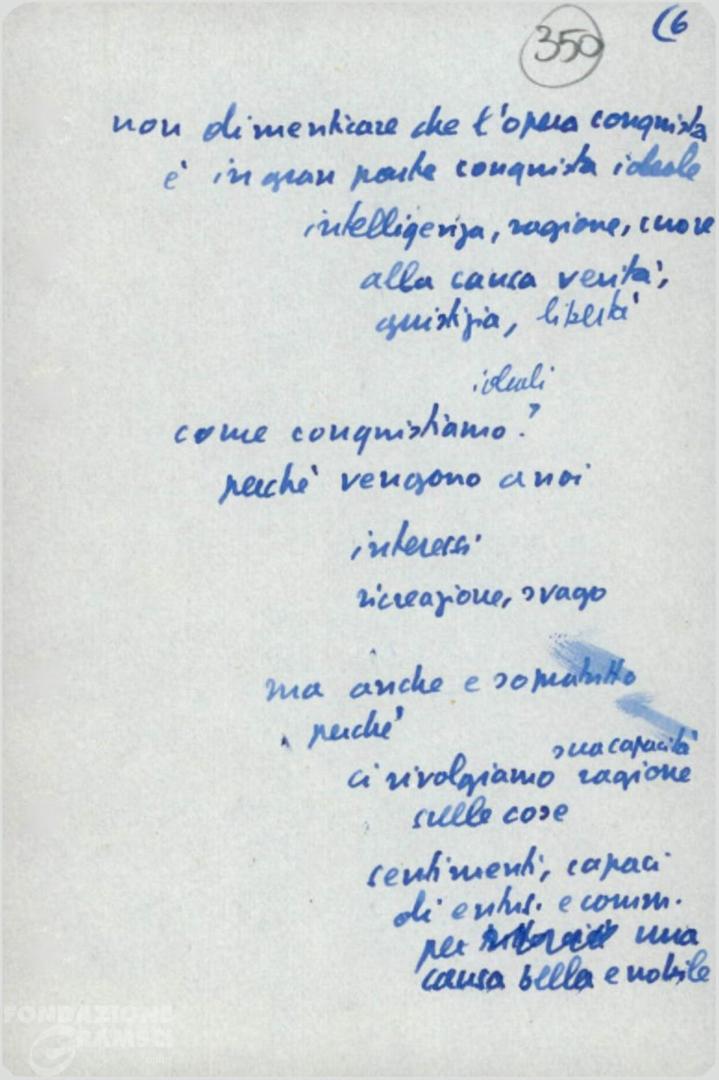 350
(6
non dimenticare che l'opera conquista
è in gran parte conquista ideale
intelligenza, ragione, cuore
alla causa verità,
giustizia, libertà
ideali
come conquistiamo?
perché vengono a noi
interessi
ricreazione, svago
ma anche e sopratutto
perché
sua capacità
ci rivolgiamo ragione
sulle cose
sentimenti, capaci
di entus. e comm.
per una
causa bella e nobile
FONDAZIONE
GRAMSCI